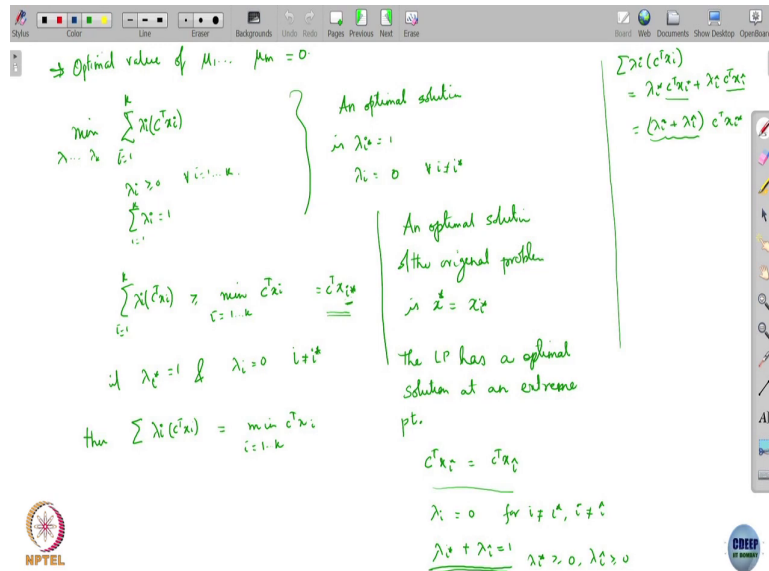 Stylus Color Line Eraser Backgrounds Undo Redo Pages Previous Next Erase Board Web Documents Show Desktop OpenBoar
⇒ Optimal value of μ₁... μm = 0.
min Σ_{i=1}^{k} λi(cᵀxi)
λ... λk
λi ≥ 0 ∀ i=1...k.
Σ_{i=1}^{k} λi = 1
An optimal solutin
is λi* = 1
λi = 0 ∀ i≠i*
Σ_{i=1}^{k} λi(cᵀxi) ≥ min_{i=1...k} cᵀxi = cᵀxi*
if λi* = 1 & λi = 0 i≠i*
then Σ λi(cᵀxi) = min_{i=1..k} cᵀxi
An optimal solutin
of the original problem
is x* = xi*
The LP has a optimal
solution at an extreme
pt.
cᵀxi* = cᵀxî
λi = 0 for i≠i*, i≠î
λi* + λî = 1 λi* ≥ 0, λî ≥ 0
Σλi(cᵀxi)
= λi* cᵀxi* + λî cᵀxî
= (λi* + λî) cᵀxi*
NPTEL
CDEEP
IIT BOMBAY